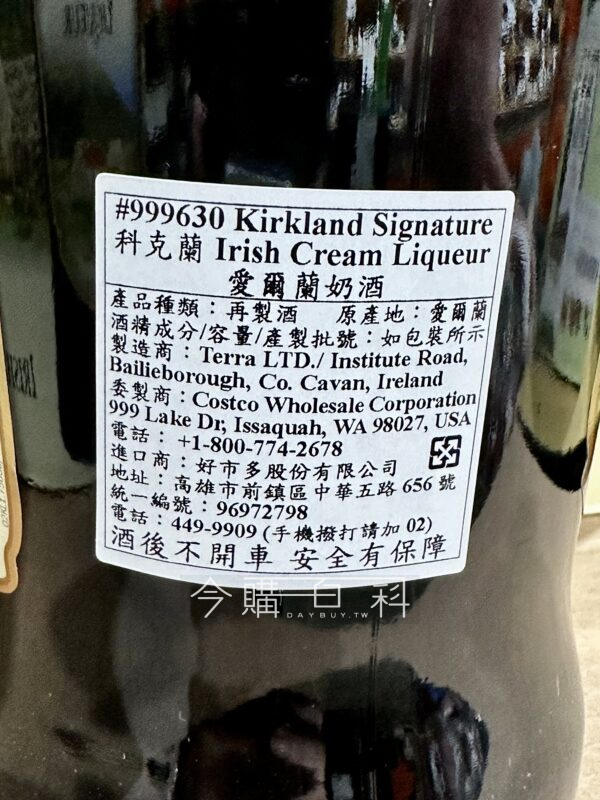 #999630 Kirkland Signature
科克蘭 Irish Cream Liqueur
愛爾蘭奶酒
產品種類：再製酒 原產地：愛爾蘭
酒精成分/容量/產製批號：如包裝所示
製造商：Terra LTD./ Institute Road,
Bailieborough, Co. Cavan, Ireland
委製商：Costco Wholesale Corporation
999 Lake Dr, Issaquah, WA 98027, USA
電話： +1-800-774-2678
進口商：好市多股份有限公司
地址：高雄市前鎮區中華五路 656 號
統一編號：96972798
電話：449-9909 (手機撥打請加 02)
酒後不開車 安全有保障
今購百科
DAYBUY.TW